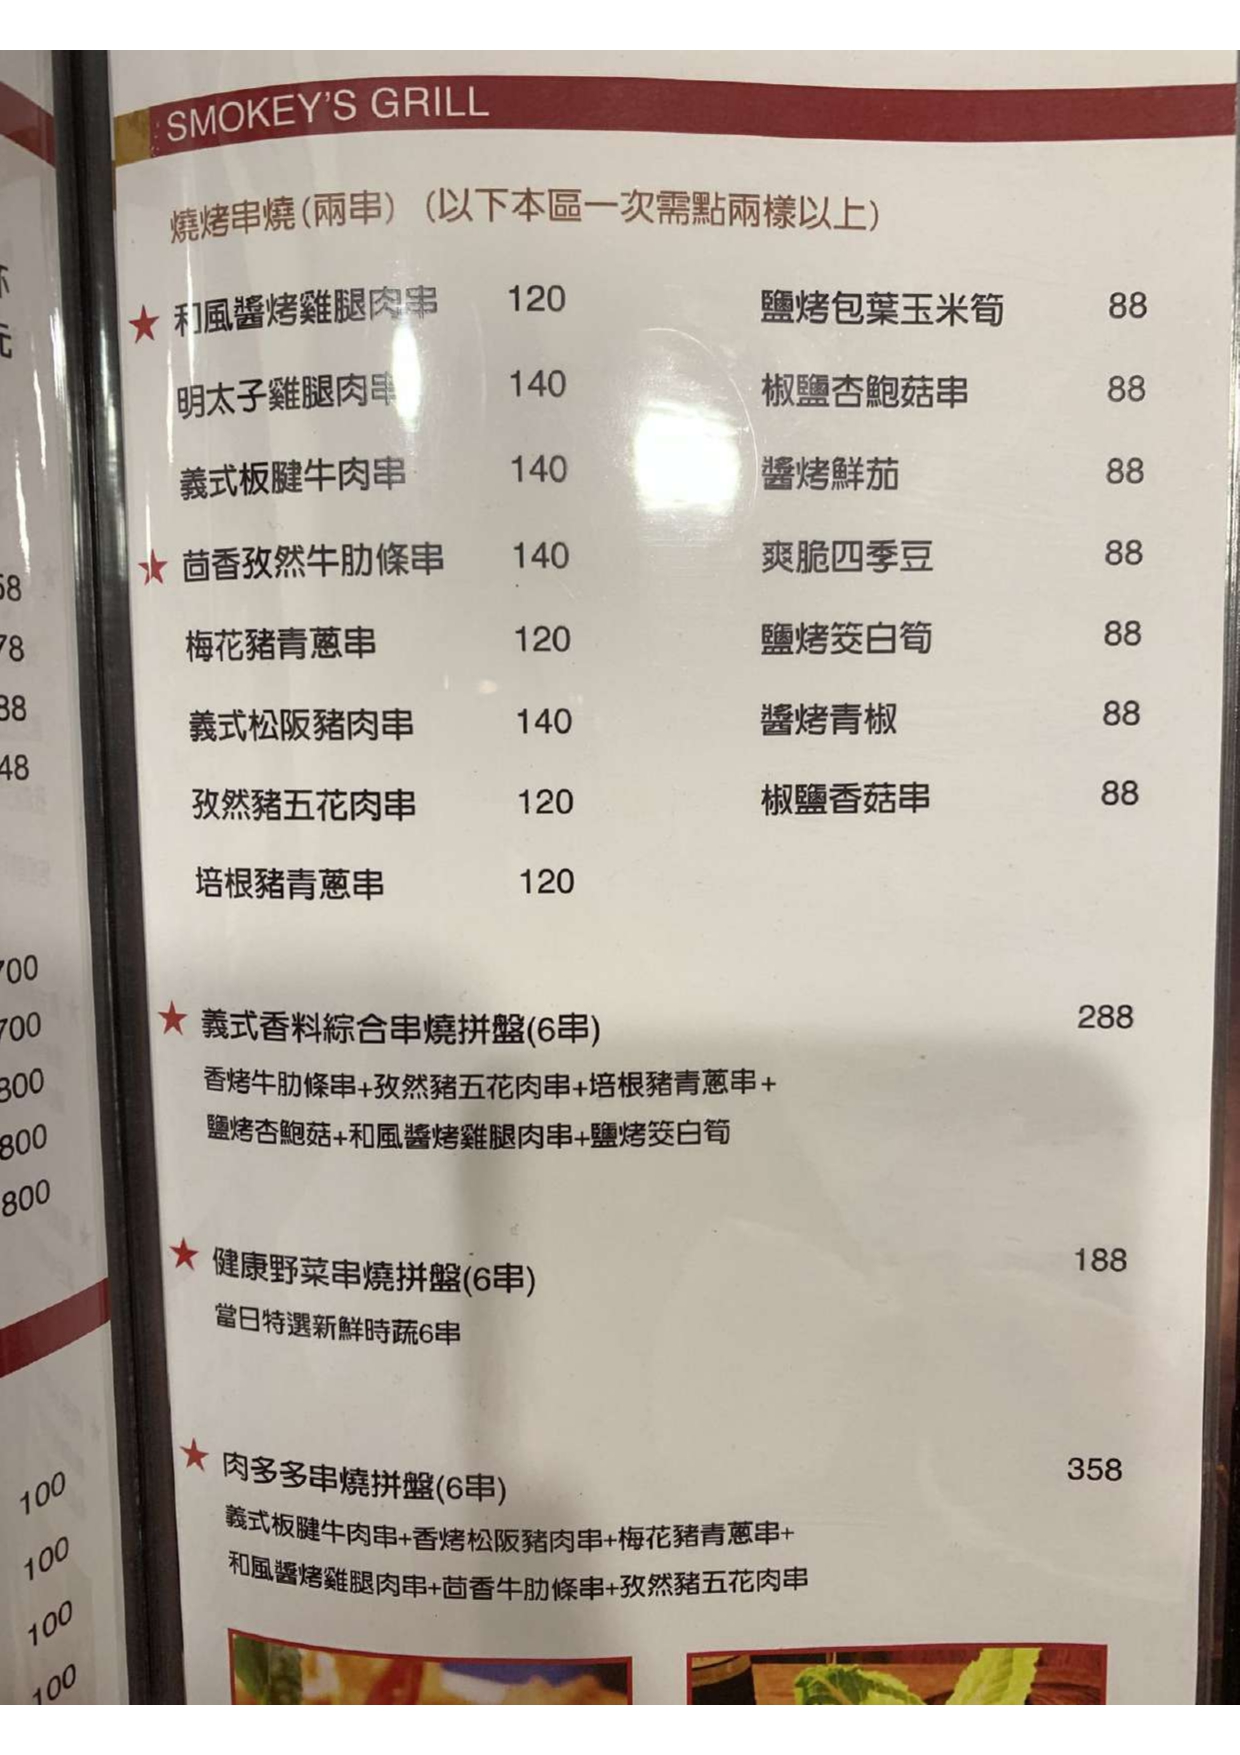 SMOKEY'S GRILL
燒烤串燒(兩串) (以下本區一次需點兩樣以上)
★ 和風醬烤雞腿肉串 120
明太子雞腿肉串 140
義式板腱牛肉串 140
★ 茴香孜然牛肋條串 140
梅花豬青蔥串 120
義式松阪豬肉串 140
孜然豬五花肉串 120
培根豬青蔥串 120
鹽烤包葉玉米筍 88
椒鹽杏鮑菇串 88
醬烤鮮茄 88
爽脆四季豆 88
鹽烤筊白筍 88
醬烤青椒 88
椒鹽香菇串 88
★ 義式香料綜合串燒拼盤(6串) 288
香烤牛肋條串+孜然豬五花肉串+培根豬青蔥串+
鹽烤杏鮑菇+和風醬烤雞腿肉串+鹽烤筊白筍
★ 健康野菜串燒拼盤(6串) 188
當日特選新鮮時蔬6串
★ 肉多多串燒拼盤(6串) 358
義式板腱牛肉串+香烤松阪豬肉串+梅花豬青蔥串+
和風醬烤雞腿肉串+茴香牛肋條串+孜然豬五花肉串
100
100
100
100